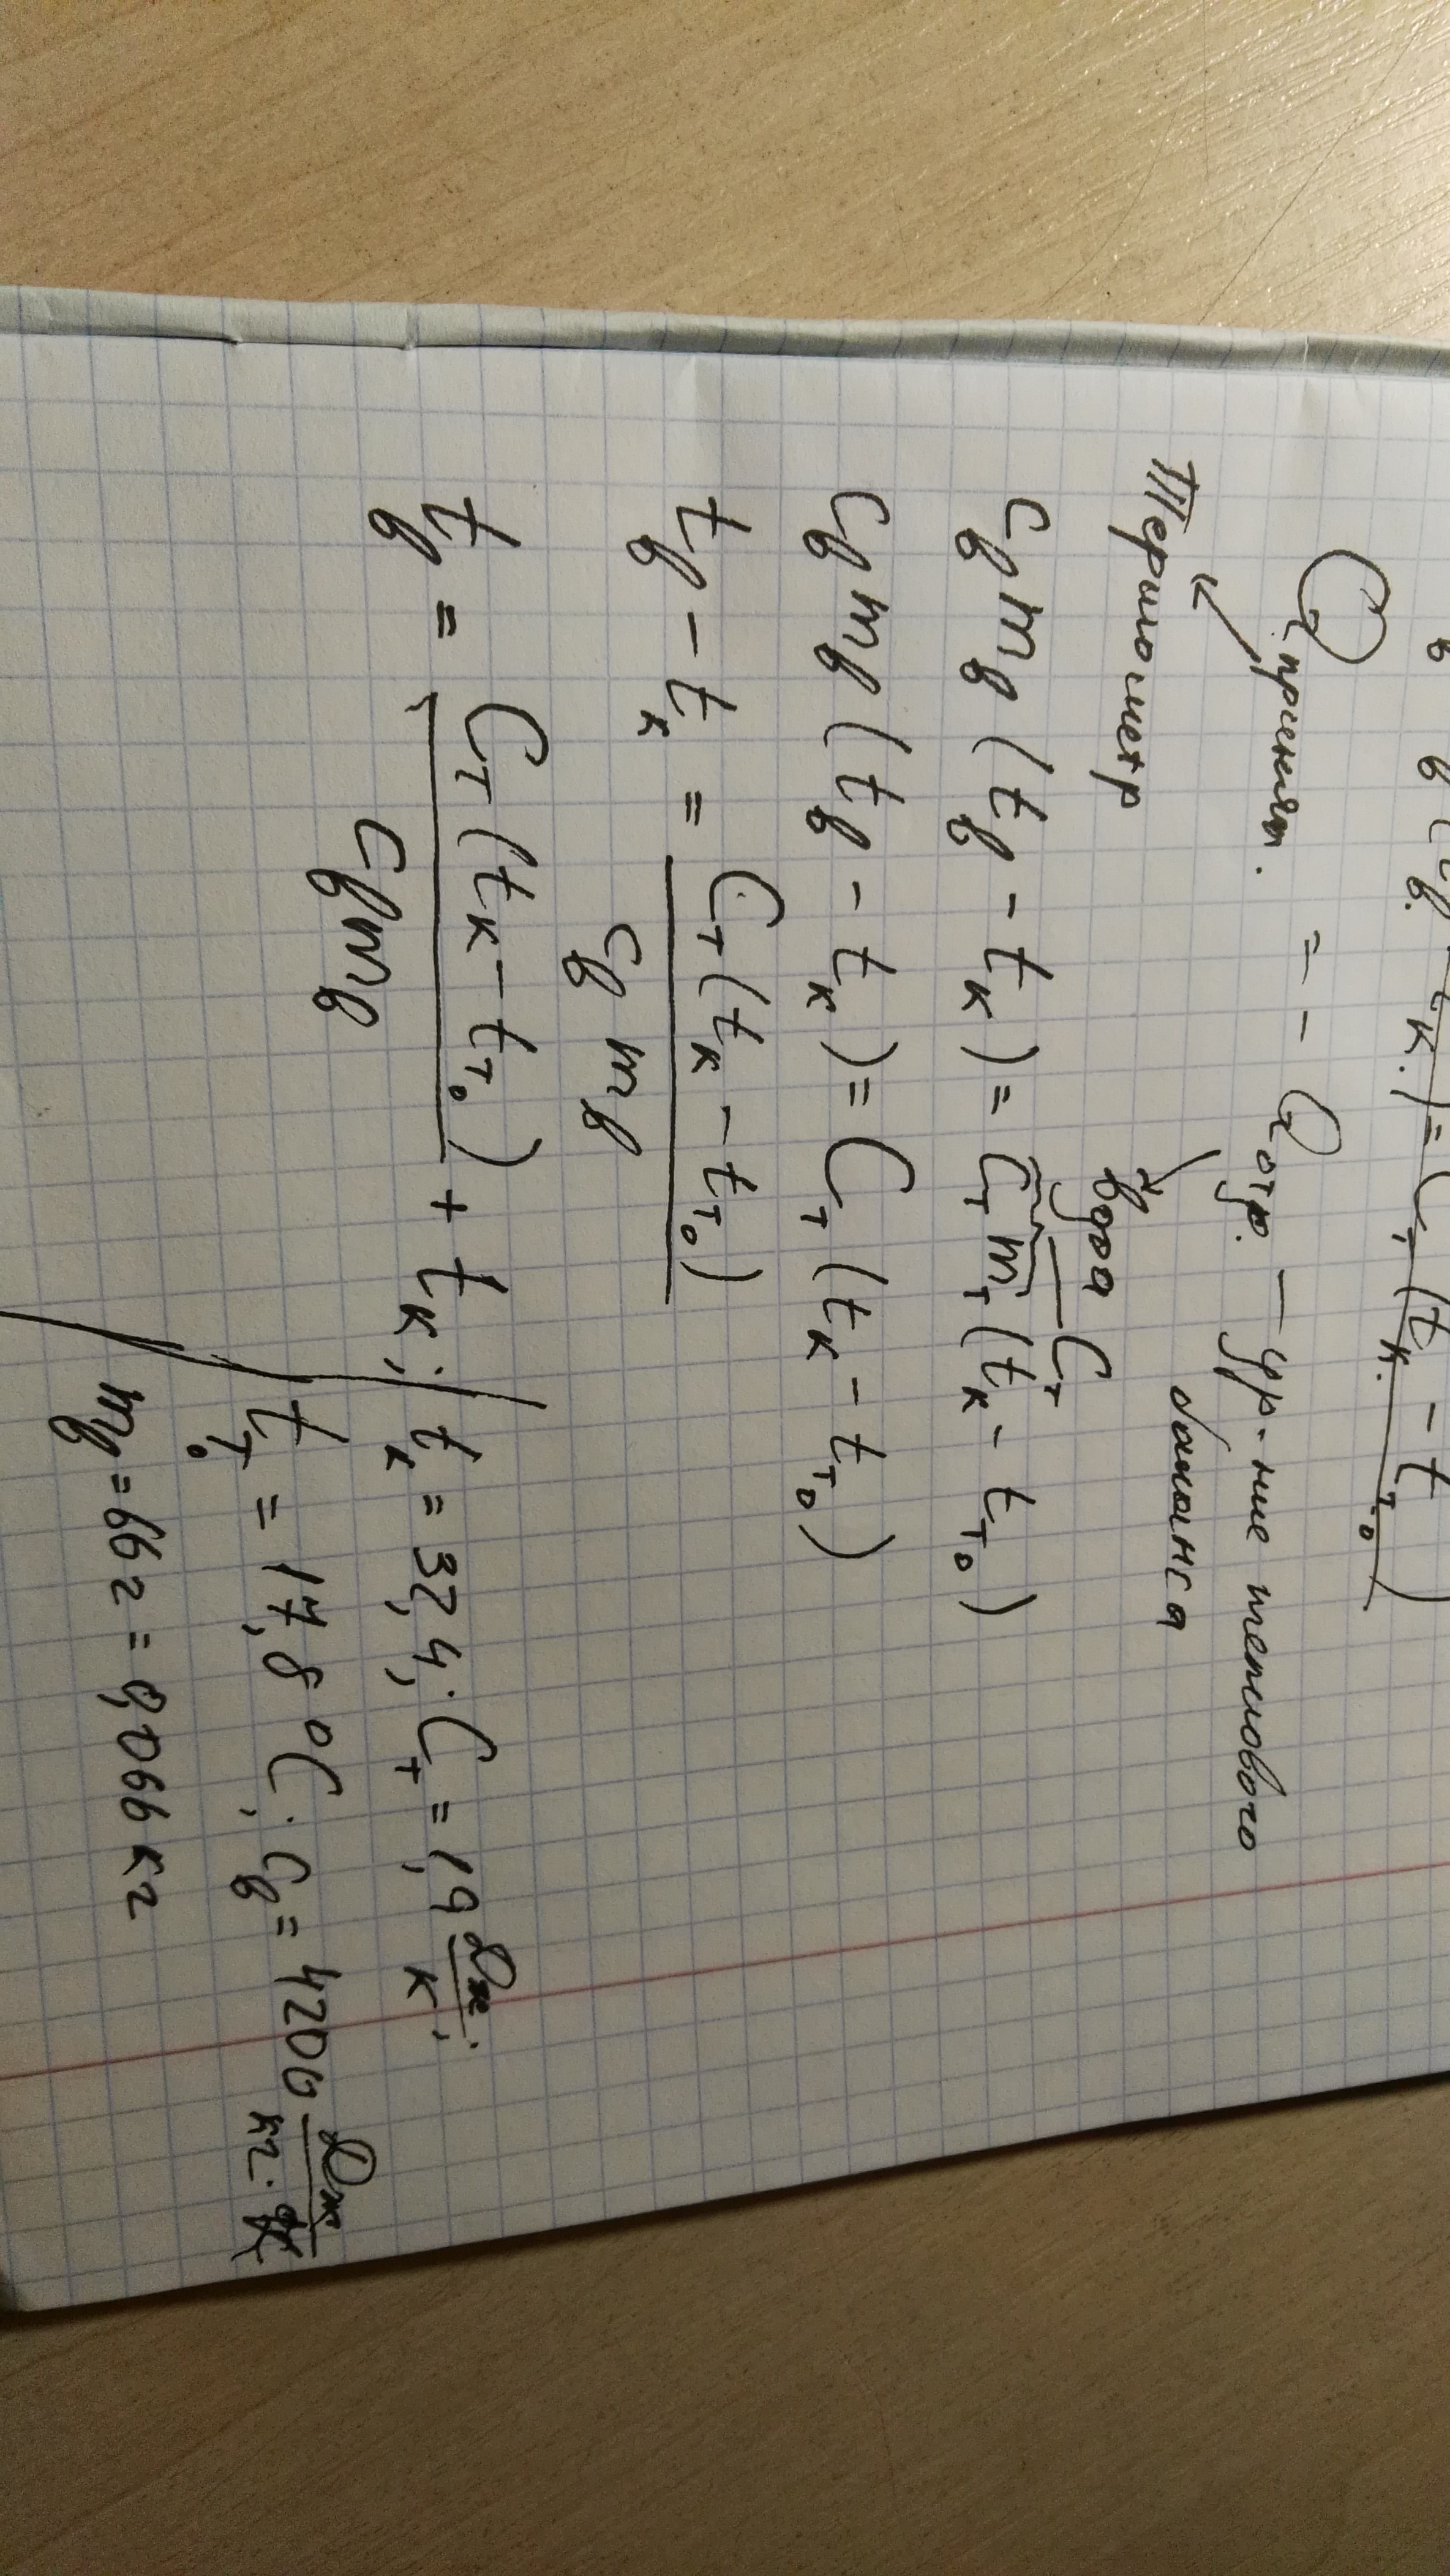 t_к.) = C_т (t_к. - t_т₀)
Q принят. = - Qотр. - ур-ние теплового
баланса
Термометр вода
C_т
c_в m_в (t_в - t_к) = c_т m_т (t_к - t_т₀)
c_в m_в (t_в - t_к) = C_т (t_к - t_т₀)
t_в - t_к = C_т (t_к - t_т₀) / c_в m_в
t_в = C_т (t_к - t_т₀) / c_в m_в + t_к;
t_к = 32,4; C_т = 1,9 Дж/К;
t_т₀ = 17,8 °C; c_в = 4200 Дж/кг·К
m_в = 66 г = 0,066 кг